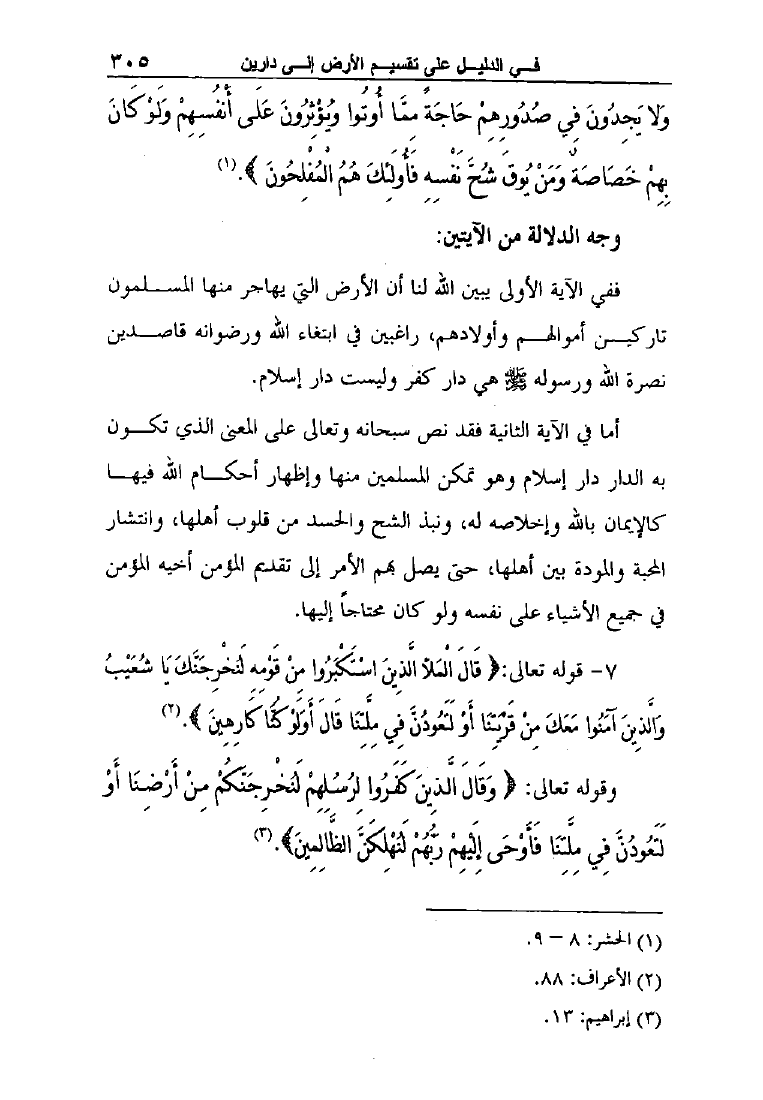 في الدليل على تقسيم الأرض إلى دارين ٣٠٥
وَلا يَجِدُونَ فِي صُدُورِهِمْ حَاجَةً مِمَّا أُوتُوا وَيُؤْثِرُونَ عَلَى أَنْفُسِهِمْ وَلَوْ كَانَ
بِهِمْ خَصَاصَةٌ وَمَنْ يُوقَ شُحَّ نَفْسِهِ فَأُولَئِكَ هُمُ الْمُفْلِحُونَ ﴾.(١)
وجه الدلالة من الآيتين:
ففي الآية الأولى يبين الله لنا أن الأرض التي يهاجر منها المسلمون
تاركين أموالهم وأولادهم، راغبين في ابتغاء الله ورضوانه قاصدين
نصرة الله ورسوله ﷺ هي دار كفر وليست دار إسلام.
أما في الآية الثانية فقد نص سبحانه وتعالى على المعنى الذي تكون
به الدار دار إسلام وهو تمكن المسلمين منها وإظهار أحكام الله فيها
كالإيمان بالله وإخلاصه له، ونبذ الشح والحسد من قلوب أهلها، وانتشار
المحبة والمودة بين أهلها، حتى يصل بهم الأمر إلى تقديم المؤمن أخيه المؤمن
في جميع الأشياء على نفسه ولو كان محتاجاً إليها.
٧- قوله تعالى:﴿ قَالَ الْمَلأُ الَّذِينَ اسْتَكْبَرُوا مِنْ قَوْمِهِ لَنُخْرِجَنَّكَ يَا شُعَيْبُ
وَالَّذِينَ آمَنُوا مَعَكَ مِنْ قَرْيَتِنَا أَوْ لَتَعُودُنَّ فِي مِلَّتِنَا قَالَ أَوَلَوْ كُنَّا كَارِهِينَ ﴾.(٢)
وقوله تعالى: ﴿ وَقَالَ الَّذِينَ كَفَرُوا لِرُسُلِهِمْ لَنُخْرِجَنَّكُمْ مِنْ أَرْضِنَا أَوْ
لَتَعُودُنَّ فِي مِلَّتِنَا فَأَوْحَى إِلَيْهِمْ رَبُّهُمْ لَنُهْلِكَنَّ الظَّالِمِينَ﴾.(٣)
(١) الحشر: ٨ – ٩.
(٢) الأعراف: ٨٨.
(٣) إبراهيم: ١٣.